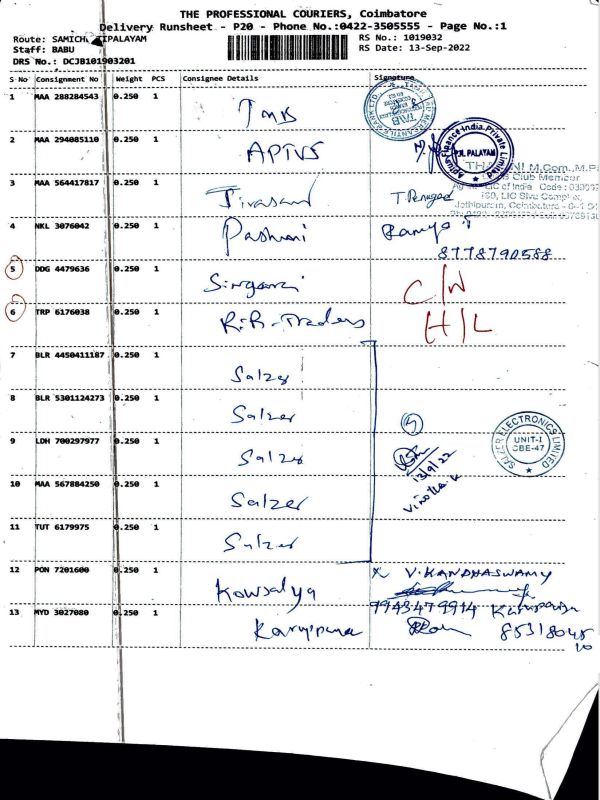 THE PROFESSIONAL COURIERS, Coimbatore
Delivery Runsheet - P20 - Phone No.:0422-3505555 - Page No.:1
Route: SAMICH TIPALAYAM
RS No.: 1019032
Staff: BABU
RS Date: 13-Sep-2022
DRS No.: DCJB101903201
S No Consignment No Weight PCS Consignee Details Signature
1 MAA 288284543 0.250 1 TMB
2 MAA 294085110 0.250 1 APTUS
Aptus Finance India Private Limited
P.N. PALAYAM
M.Com.,
Club Member
LIC of India Code :
3 MAA 564417817 0.250 1 Jivasand
4 NKL 3076042 0.250 1 Pashmi Ramya
8778790588
5 DDG 4479636 0.250 1 C/N
6 TRP 6176038 0.250 1 R.R-Traders H/L
7 BLR 4450411187 0.250 1 Salzer
8 BLR 5301124273 0.250 1 Salzer
9 LDH 700297977 0.250 1 Salzer
5
13/9/22
SALZER ELECTRONICS LIMITED
UNIT-I
CBE-47
10 MAA 567884250 0.250 1 Salzer
11 TUT 6179975 0.250 1 Salzer
12 PON 7201600 0.250 1 Kowsalya X V.KANDHASWAMY
13 MYD 3027080 0.250 1 Karuppana